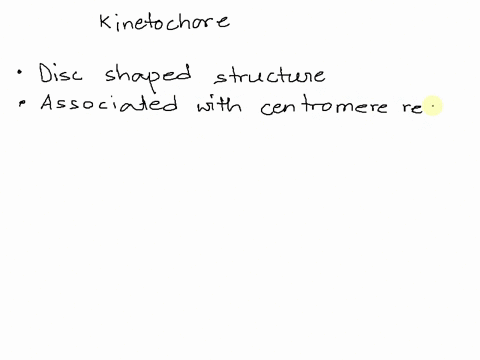 Kinetochore
• Disc shaped structure
• Associated with centromere re